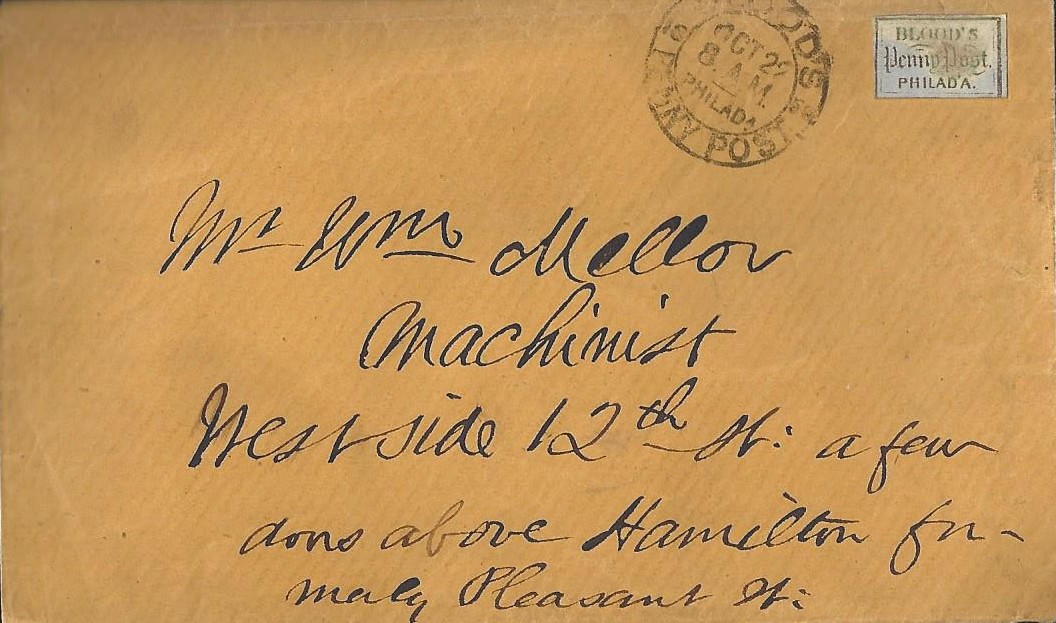 BLOOD'S
OCT 22
8 A.M.
PHILADA
PENNY POST
BLOOD'S
Penny Post.
PHILAD'A.
Mr Wm Mellor
Machinist
West side 12th St: a few
doors above Hamilton for-
merly Pleasant St: